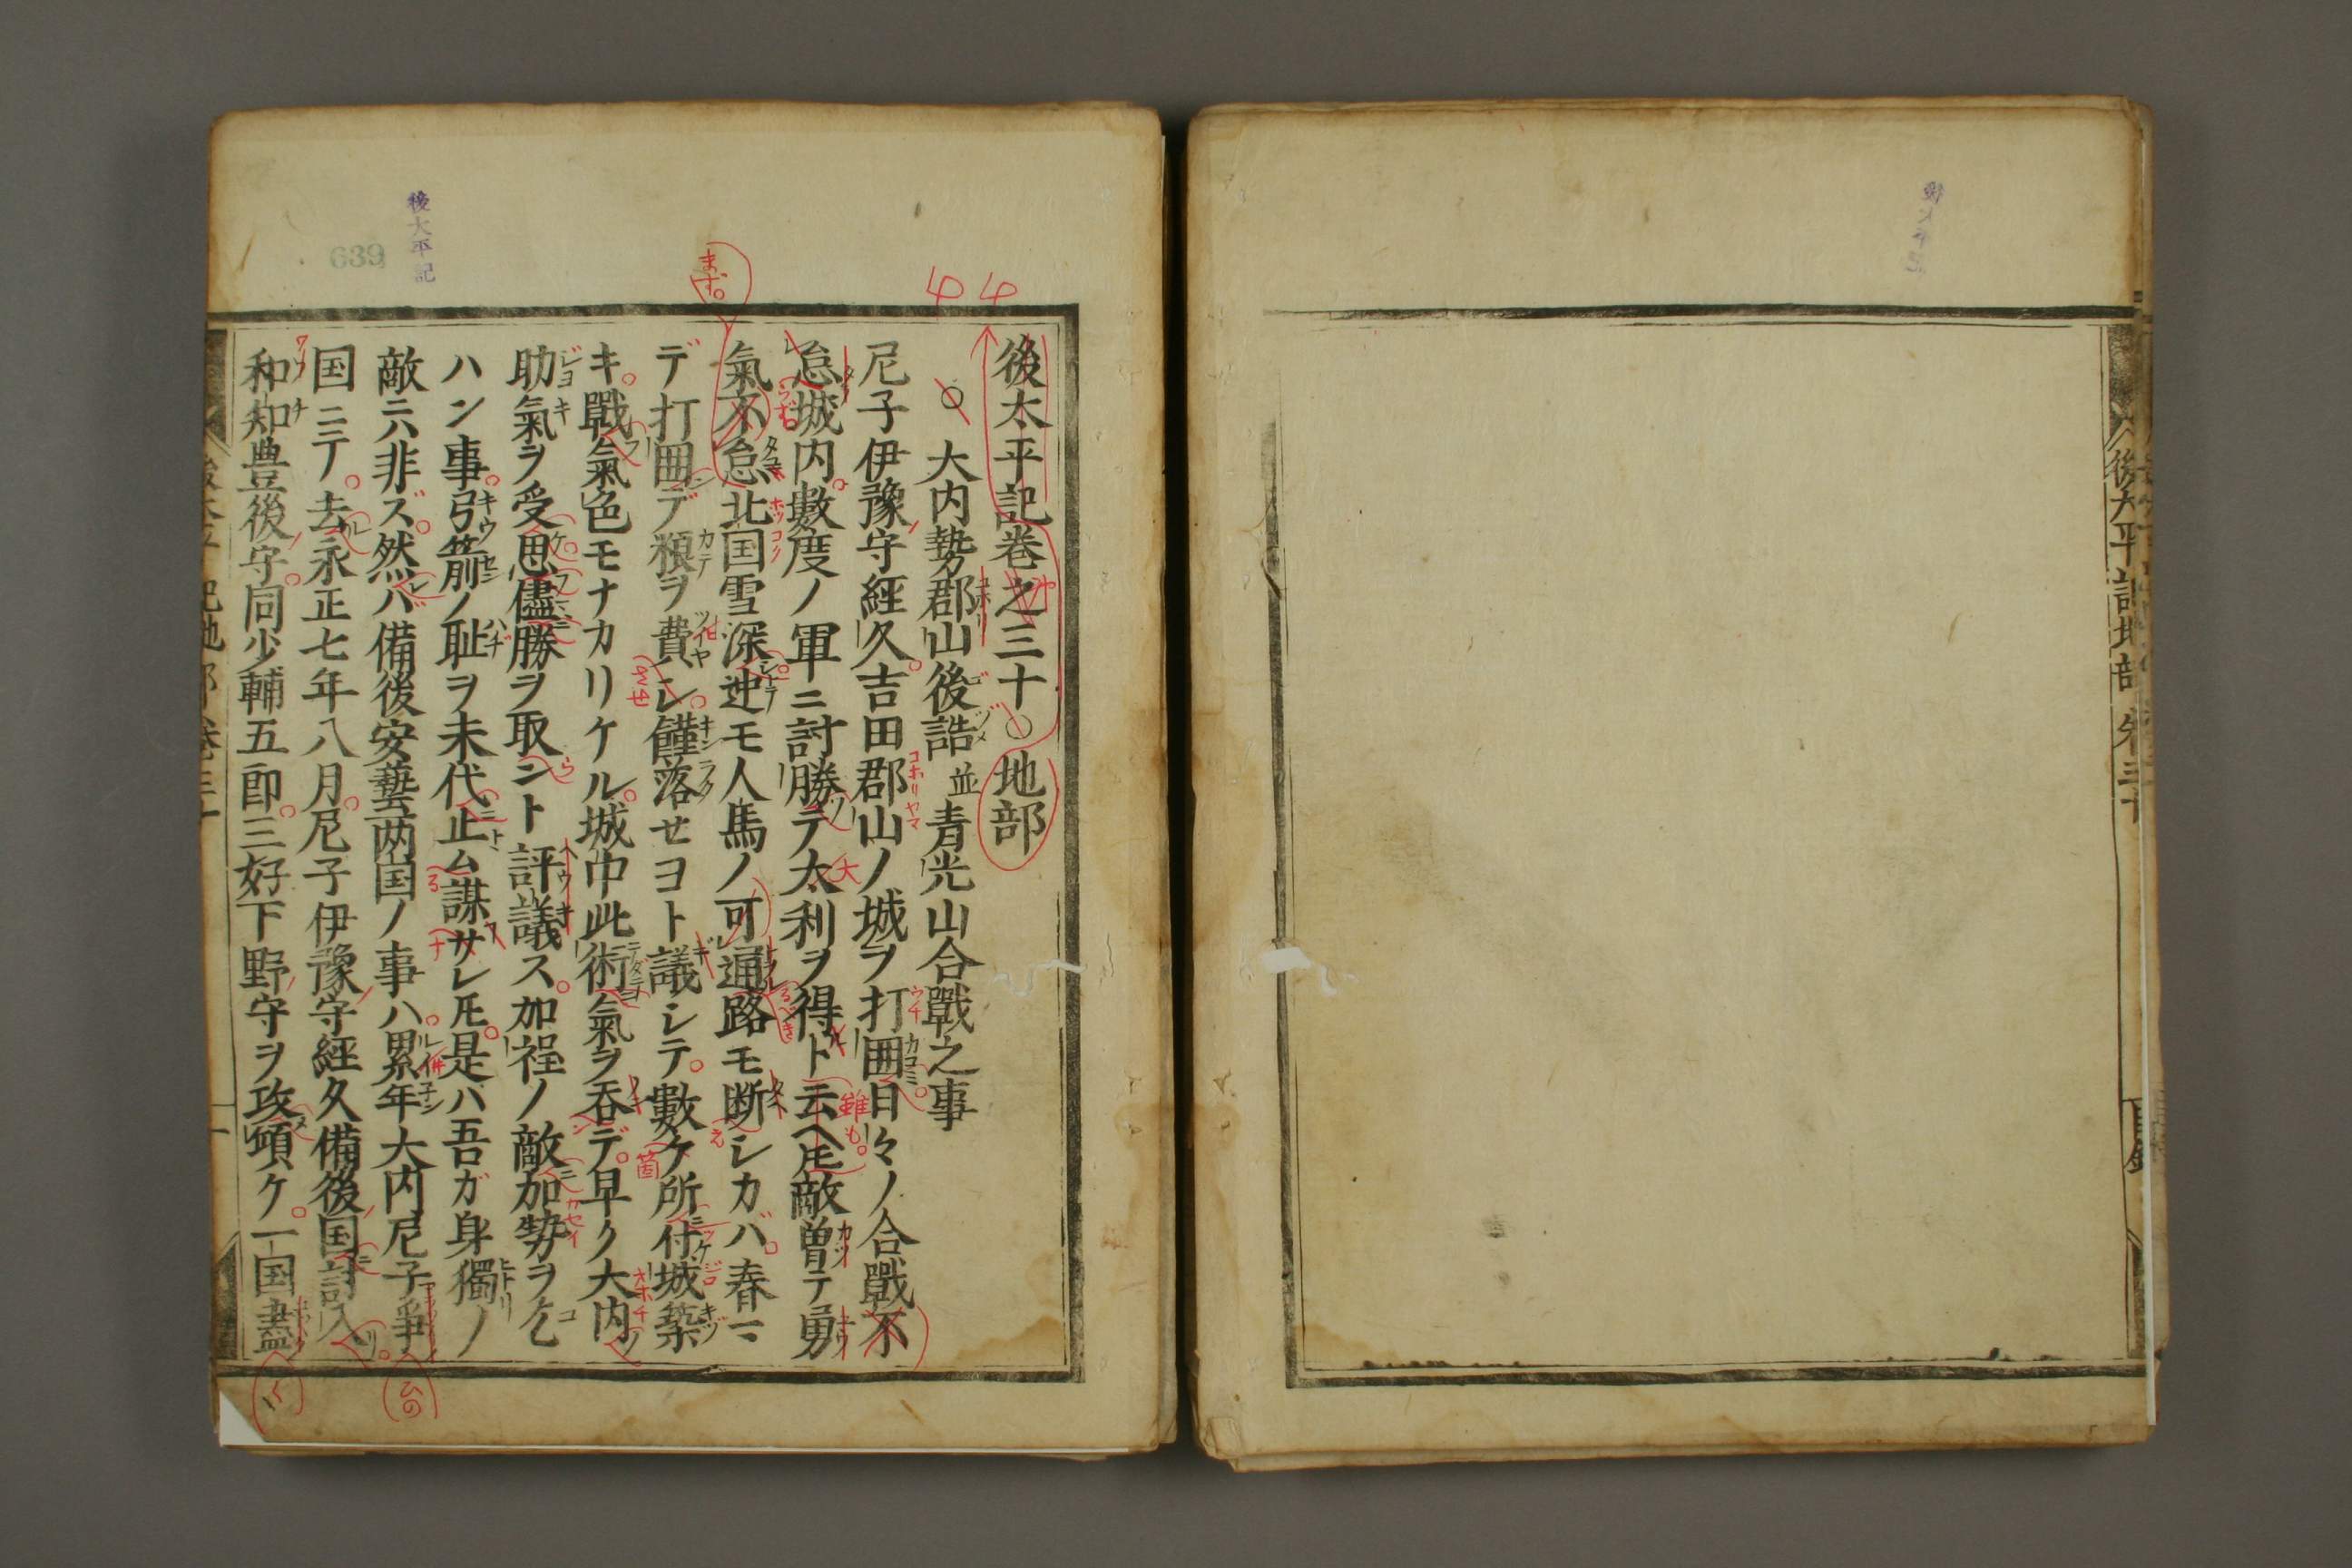 後太平記巻之三十○地部
○大内勢郡山後詰並青光山合戰之事
尼子伊豫守經久吉田郡山ノ城ヲ打囲日々ノ合戰不
怠城内數度ノ軍ニ討勝テ太利ヲ得ト云ヘ𪜈敵曽テ勇
氣不怠北国雪深迚モ人馬ノ可通路モ断シカバ春マ
デ打囲デ粮ヲ費シ饉落せヨト議シテ數ケ所付城築
キ戰氣色モナカリケル城中此術氣ヲ呑デ早ク大内
助氣ヲ受思儘勝ヲ取ント評議ス加程ノ敵加勢ヲ乞
ハン事弓箭ノ耻ヲ末代止ム謀サレ𪜈是ハ吾ガ身獨ノ
敵ニハ非ズ然バ備後安藝两国ノ事ハ累年大内尼子爭
国ニテ去永正七年八月尼子伊豫守經久備後国討入
和知豊後守同少輔五郎三好下野守ヲ攻傾ケ一国盡
後大平記
639
後太平記地部 巻三十
目録